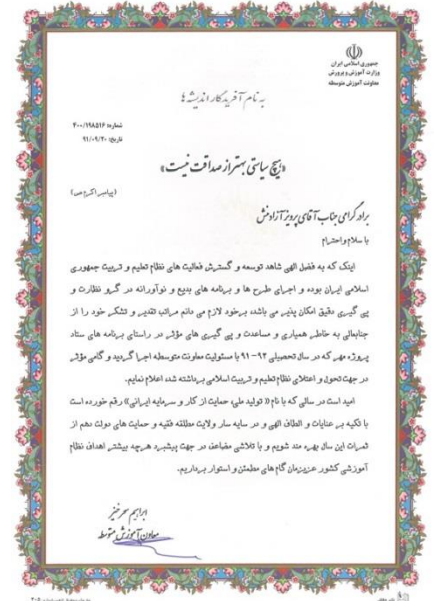 جمهوری اسلامی ایران
وزارت آموزش و پرورش
معاونت آموزش متوسطه
به نام آفریدگار اندیشه ها
شماره: ۴۰۰/۱۹۸۵۱۶
تاریخ: ۹۱/۰۹/۲۰
«هیچ سیاستی بهتر از صداقت نیست»
(پیامبر اکرم ص)
برادر گرامی جناب آقای پرویز آزادمنش
با سلام و احترام
اینک که به فضل الهی شاهد توسعه و گسترش فعالیت های نظام تعلیم و تربیت جمهوری
اسلامی ایران بوده و اجرای طرح ها و برنامه های بدیع و نوآورانه در گرو نظارت و
پی گیری دقیق امکان پذیر می باشد، برخود لازم می دانم مراتب تقدیر و تشکر خود را از
جنابعالی به خاطر همیاری و مساعدت و پی گیری های مؤثر در راستای برنامه های ستاد
پروژه مهر که در سال تحصیلی ۹۲-۹۱ با مسئولیت معاونت متوسطه اجرا گردید و گامی مؤثر
در جهت تحول و اعتلای نظام تعلیم و تربیت اسلامی برداشته شد، اعلام نمایم.
امید است در سالی که با نام «تولید ملی، حمایت از کار و سرمایه ایرانی» رقم خورده است
با تکیه بر عنایات و الطاف الهی و در سایه سار ولایت مطلقه فقیه و حمایت های دولت دهم از
ثمرات این سال بهره مند شویم و با تلاشی مضاعف در جهت پیشبرد هرچه بیشتر اهداف نظام
آموزشی کشور عزیزمان گام های مطمئن و استوار برداریم.
ابراهیم سحرخیز
معاون آموزش متوسطه